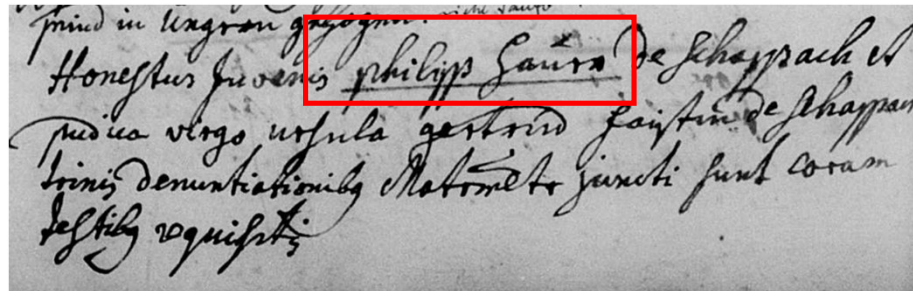 sind in Ungran gezogen.
Honestus Juvenis philipp Haürer de Schappach et
pudica virgo ursula gertrud de Schappach
trinis denuntiationibq Matrimto juncti sunt coram
testibq requisitis